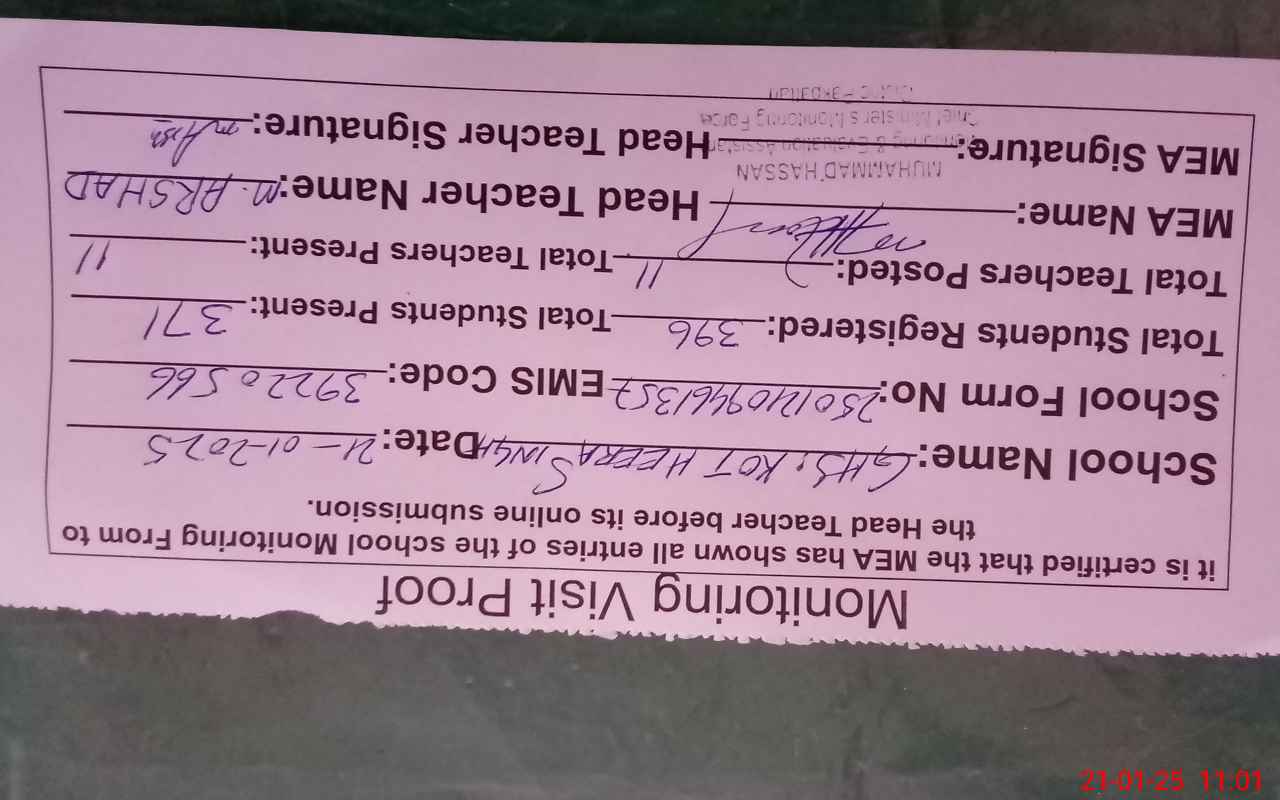 Monitoring Visit Proof
it is certified that the MEA has shown all entries of the school Monitoring From to
the Head Teacher before its online submission.
School Name: GHS, KOT HEERA SINGH Date: 21-01-2025
School Form No: 25012109461357 EMIS Code: 39220566
Total Students Registered: 396 Total Students Present: 371
Total Teachers Posted: 11 Total Teachers Present: 11
MEA Name: Head Teacher Name: M. ARSHAD
MUHAMMAD HASSAN
Monitoring & Evaluation Assistant
Chief Minister's Monitoring Force
MEA Signature: Head Teacher Signature:
21-01-25 11:01